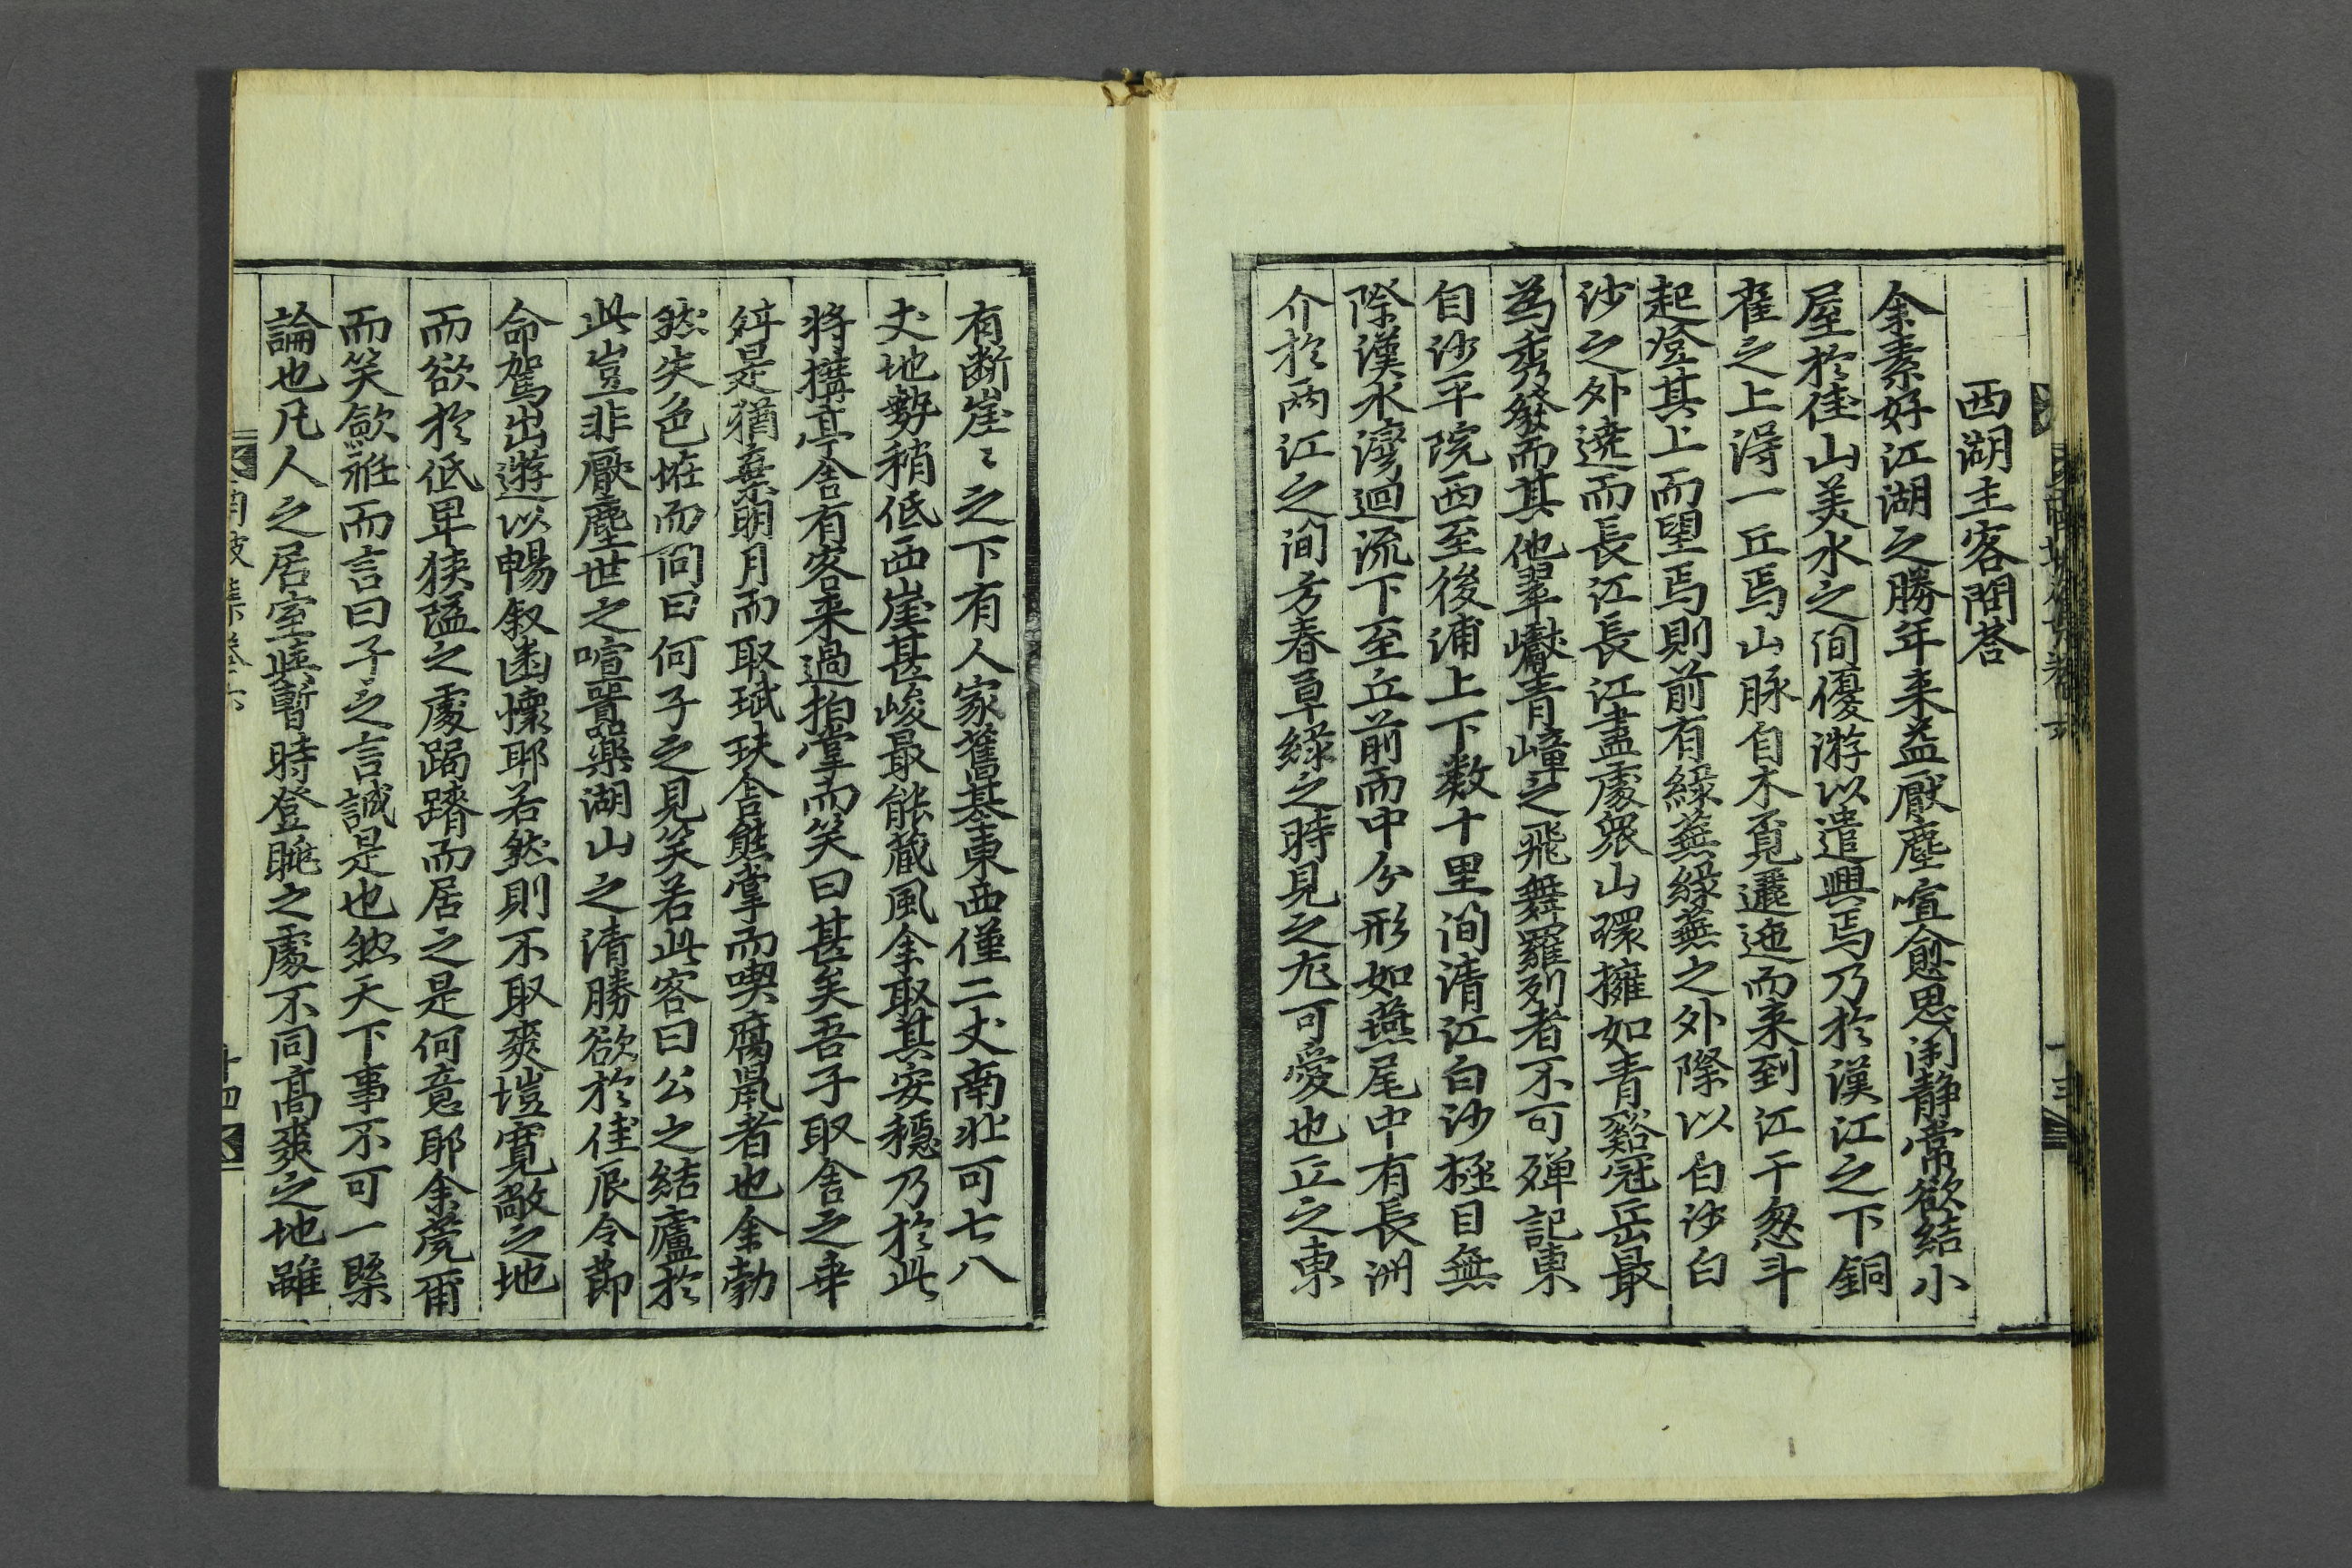 西湖主客問荅
余素好江湖之勝年来益厭塵喧愈思閑靜常欲結小
屋於佳山美水之間優游以遣興焉乃於漢江之下銅
雀之上得一丘焉山脉自木覓邐迤而来到江干忽斗
起登其上而望焉則前有綠蕪綠蕪之外際以白沙白
沙之外遶而長江長江盡處衆山環擁如青谿冠岳最
為秀發而其他翠巘青嶂之飛舞羅列者不可殫記東
自沙平院西至後浦上下数十里间清江白沙極目無
際漢水灣迴流下至丘前而中分形如燕尾中有長洲
介於兩江之间方春草綠之時見之尤可愛也丘之東
有断崖〻之下有人家舊基東西僅二丈南北可七八
丈地勢稍低西崖甚峻最能藏風余取其安穩乃於此
将搆亭舍有客来過拍掌而笑曰甚矣吾子取舍之乖
舛是猶棄明月而取珷玞舍熊掌而喫腐鼠者也余勃
然失色恠而问曰何子之見笑若此客曰公之結廬於
此豈非厭塵世之喧囂樂湖山之清勝欲於佳辰令節
命駕出遊以暢叙幽懷耶若然則不取爽塏寬敞之地
而欲於低卑狹隘之處跼蹐而居之是何意耶余莞爾
而笑歛袵而言曰子之言誠是也然天下事不可一槩
論也凡人之居室與暫時登眺之處不同高爽之地雖
十四